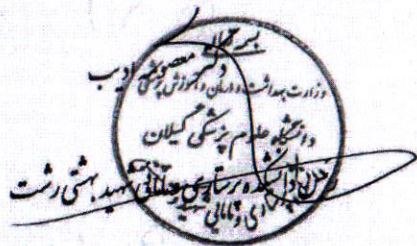 دکتر معصومه ادیب
وزارت بهداشت و درمان و آموزش پزشکی
دانشگاه علوم پزشکی گیلان
دانشکده پرستاری مامائی شهید بهشتی رشت